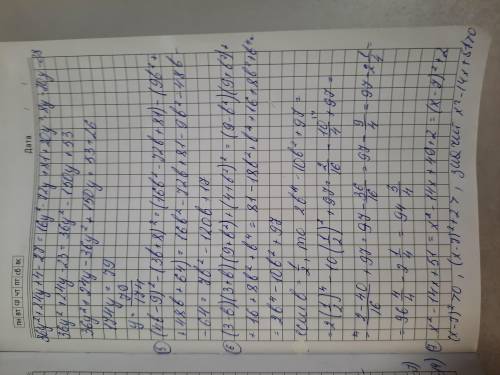 Дата
ПН ВТ СР ЧТ ПТ СБ ВС
36y² + 24y + 4 - 27 = 16y² - 72y + 81 + 20y
36y² + 24y - 23 = 36y² - 150y + 53
36y² + 24y - 36y² + 150y = 53 + 26
174y = 79
y = 79/174
⑤ (4b - 9)² - (3b + 8)² = (16b² - 72b + 81) - (9b² +
+ 48b + 64) = 16b² - 72b + 81 - 9b² - 48b
- 64 = 7b² - 120b + 17
⑥ (3-b)(3+b)(9+b²) + (4+b²)² = (9-b²)(9+b²) +
+ 16 + 8b² + b⁴ = 81 - 18b² + b⁴ + 16 + 8b² + b⁴ =
= 2b⁴ - 10b² + 97
если b = 1/2, то 2b⁴ - 10b² + 97 =
= 2(1/2)⁴ - 10(1/2)² + 97 = 2/16 - 10/4 + 97 =
= 2-40/16 + 97 = 97 - 36/16 = 97 - 9/4 = 97 - 2 1/4 =
= 96 4/4 - 2 1/4 = 94 3/4
⑦ x² - 14x + 51 = x² - 14x + 49 + 2 = (x-7)² + 2
(x-7)² ≥ 0, (x-7)² + 2 >, значит x² - 14x + 51 > 0